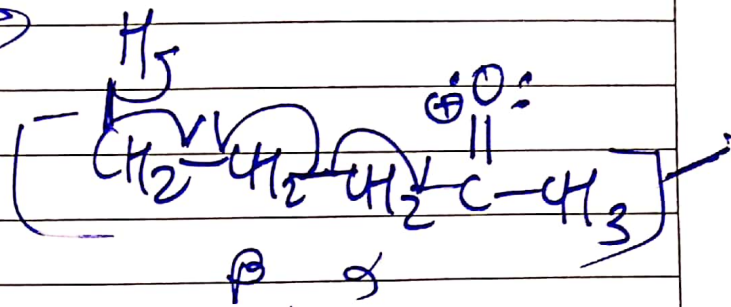 H
⊕ :O:
[CH2-CH2-CH2-C-CH3]
β α